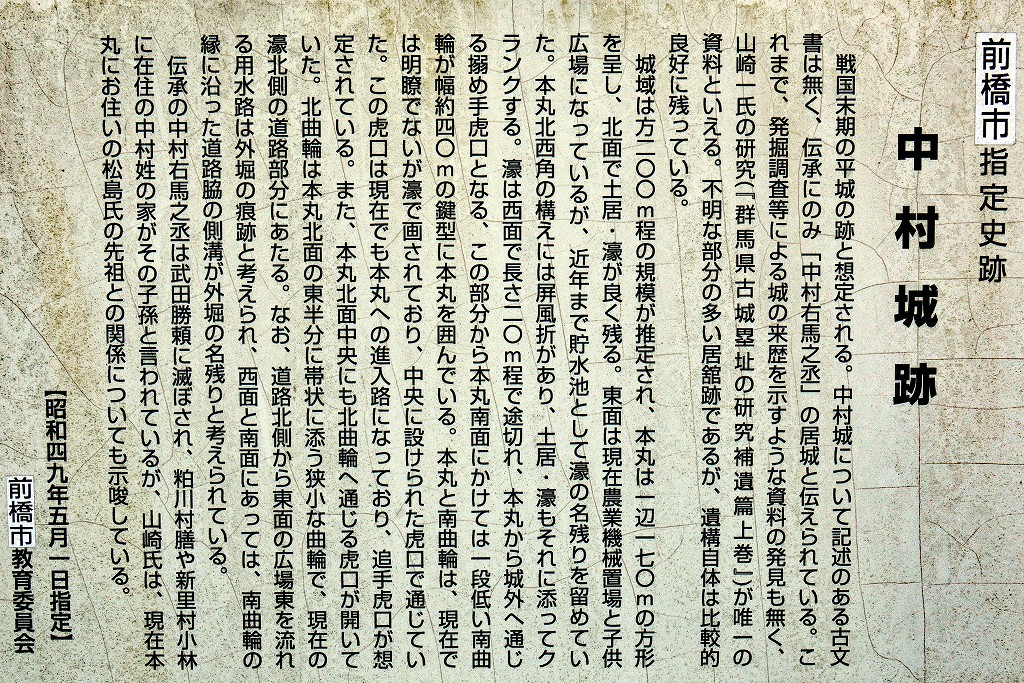 前橋市指定史跡
中村城跡
戦国末期の平城の跡と想定される。中村城について記述のある古文
書は無く、伝承にのみ「中村右馬之丞」の居城と伝えられている。こ
れまで、発掘調査等による城の来歴を示すような資料の発見も無く、
山崎一氏の研究(『群馬県古城塁址の研究補遺篇上巻』)が唯一の
資料といえる。不明な部分の多い居舘跡であるが、遺構自体は比較的
良好に残っている。
城域は方二〇〇m程の規模が推定され、本丸は一辺一七〇mの方形
を呈し、北面で土居・濠が良く残る。東面は現在農業機械置場と子供
広場になっているが、近年まで貯水池として濠の名残りを留めてい
た。本丸北西角の構えには屏風折があり、土居・濠もそれに添ってク
ランクする。濠は西面で長さ二〇m程で途切れ、本丸から城外へ通じ
る搦め手虎口となる、この部分から本丸南面にかけては一段低い南曲
輪が幅約四〇mの鍵型に本丸を囲んでいる。本丸と南曲輪は、現在で
は明瞭でないが濠で画されており、中央に設けられた虎口で通じてい
た。この虎口は現在でも本丸への進入路になっており、追手虎口が想
定されている。また、本丸北面中央にも北曲輪へ通じる虎口が開いて
いた。北曲輪は本丸北面の東半分に帯状に添う狭小な曲輪で、現在の
濠北側の道路部分にあたる。なお、道路北側から東面の広場東を流れ
る用水路は外堀の痕跡と考えられ、西面と南面にあっては、南曲輪の
縁に沿った道路脇の側溝が外堀の名残りと考えられている。
伝承の中村右馬之丞は武田勝頼に滅ぼされ、粕川村膳や新里村小林
に在住の中村姓の家がその子孫と言われているが、山崎氏は、現在本
丸にお住いの松島氏の先祖との関係についても示唆している。
【昭和四九年五月一日指定】
前橋市教育委員会